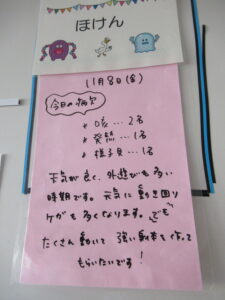 ほけん
11月8日(金)
今日の病欠
咳…2名
発熱…1名
様子見…1名
天気が良く、外遊びも多い
時期です。元気に動き回り
ケガも多くなります。でも
たくさん動いて強い身体を作って
もらいたいです!